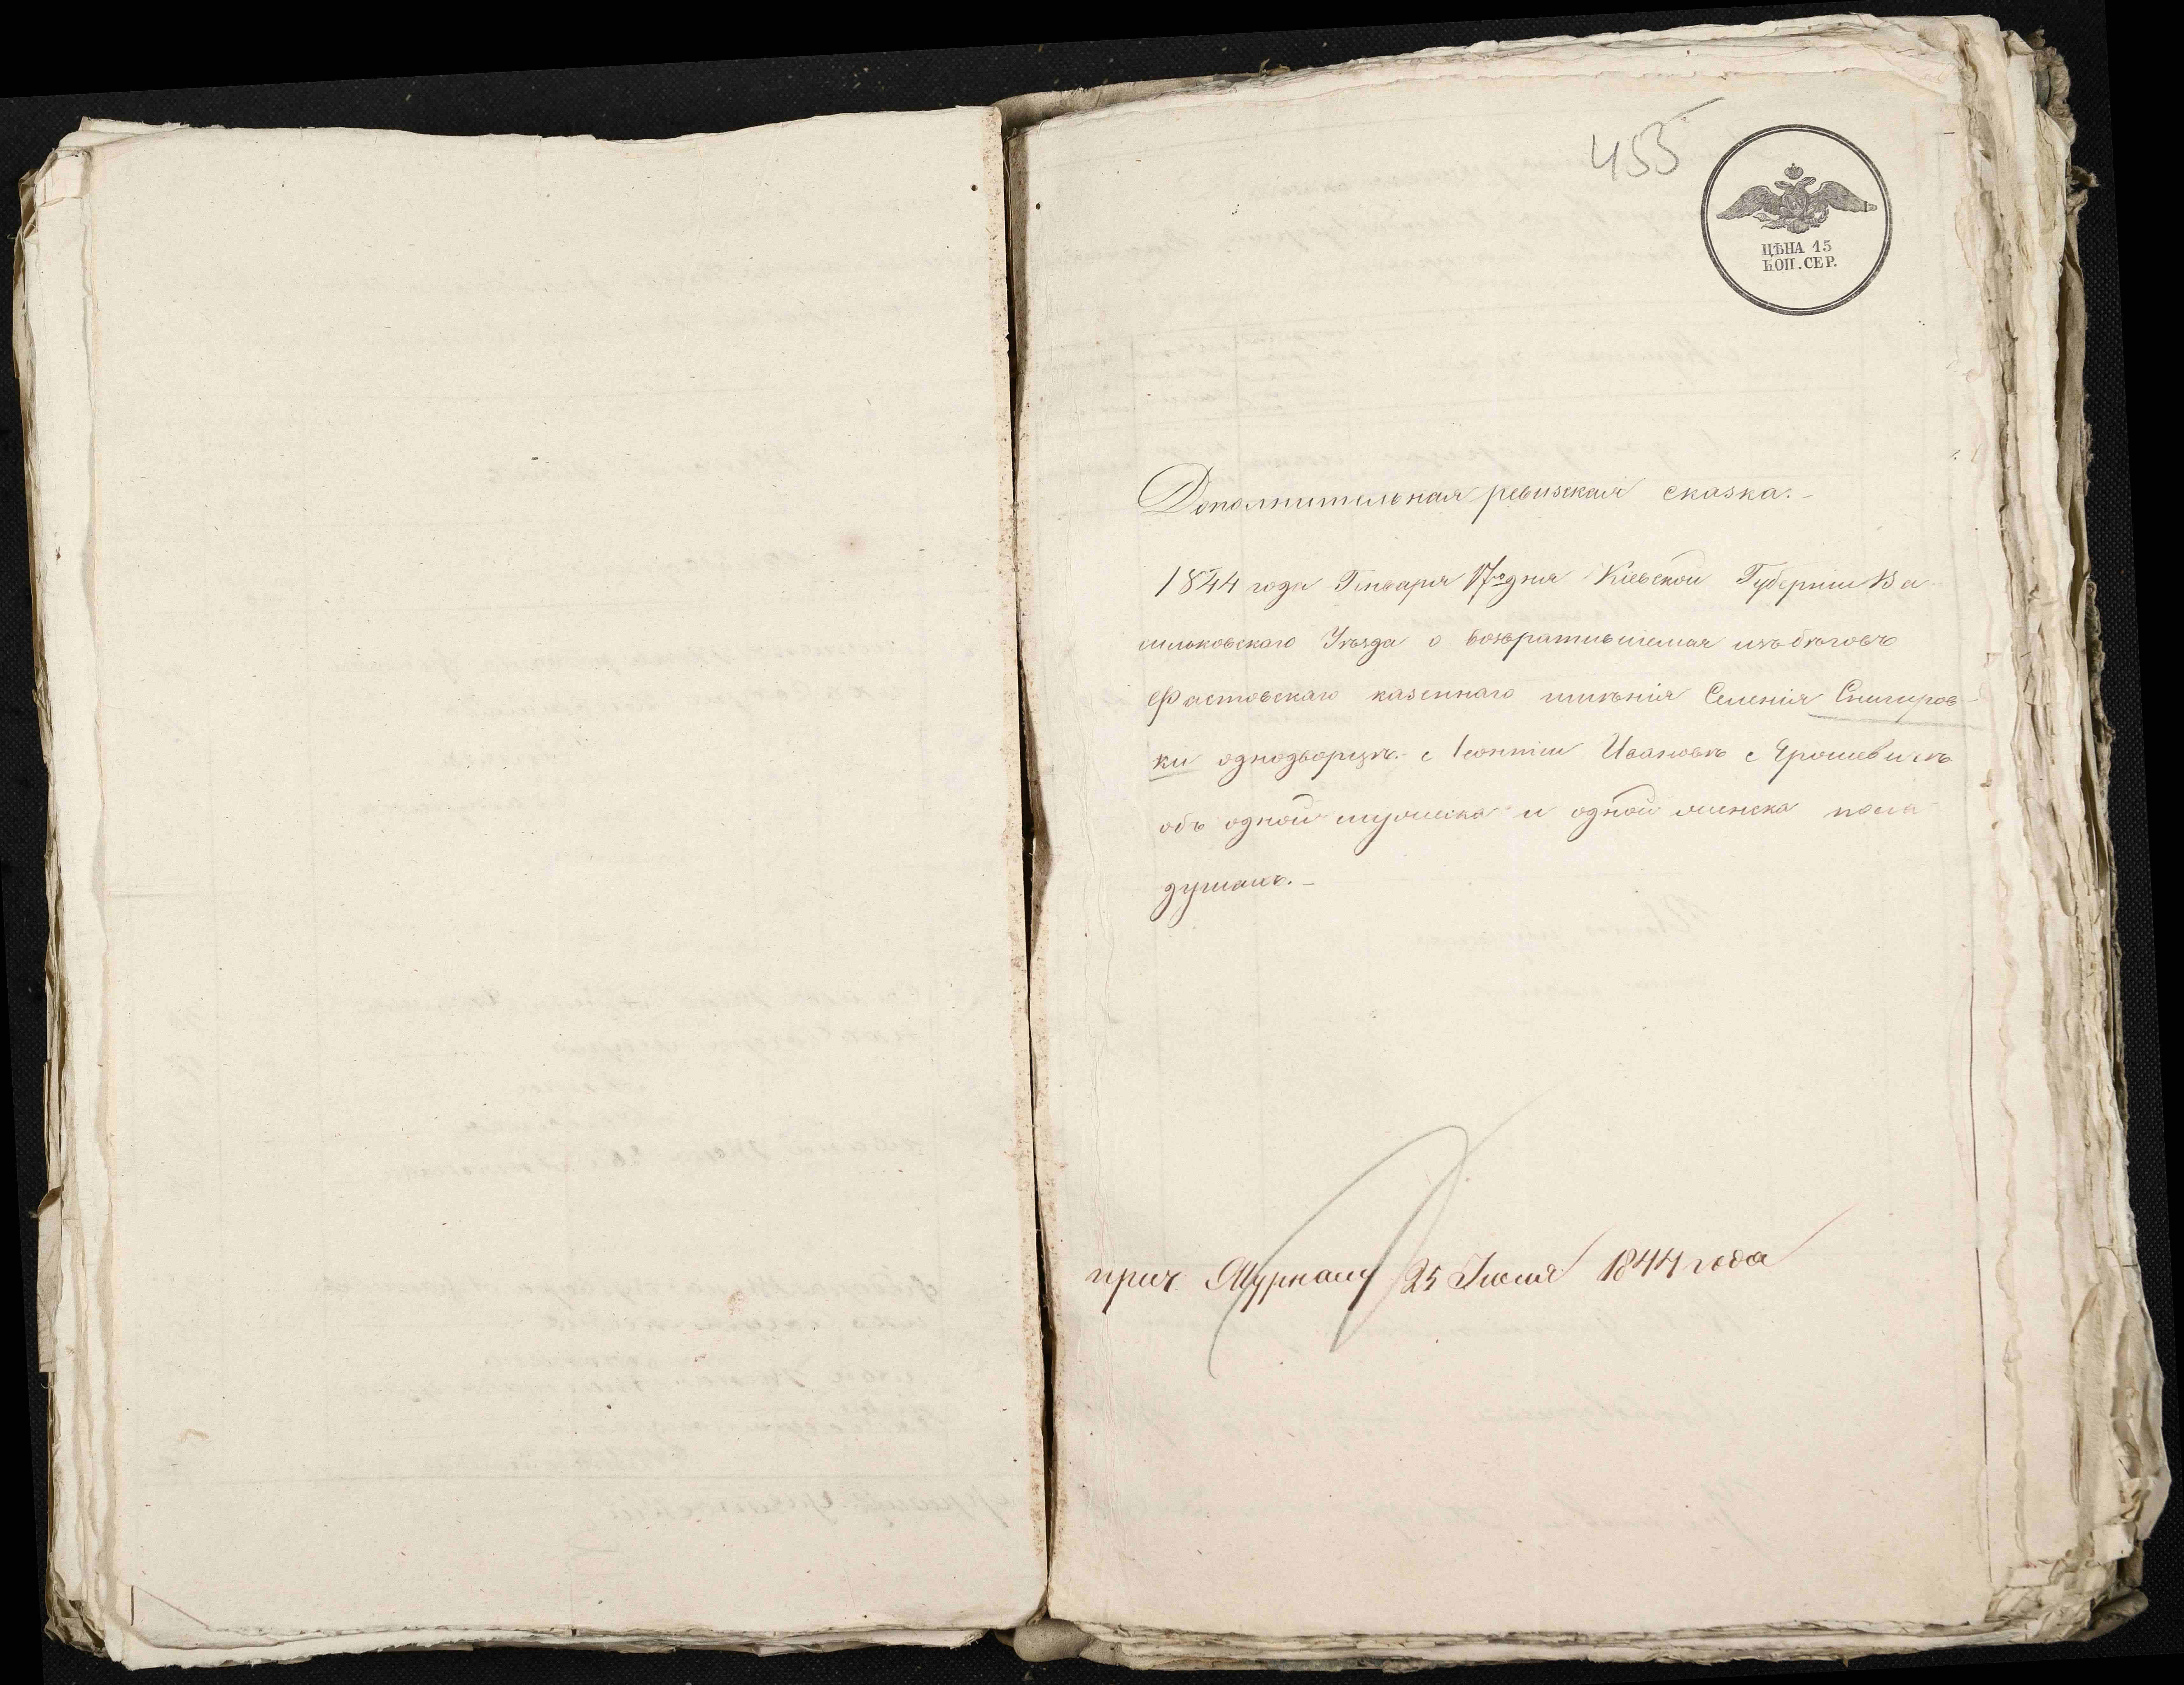 455
ЦѢНА 15
КОП. СЕР.
Дополнительная ревизская сказка.-
1844 года Генваря 17го дня Кіевской Губерніи Ва-
сильковскаго Уѣзда о возвратившемся изъ бѣговъ
Фастовскаго казеннаго имѣнія Селенія Снигиров-
ки однодворцѣ. Леонтіи Ивановѣ Ярошевичѣ
объ одной мужеска и одной женска пола
душахъ.-
25 Іюля 1844 года